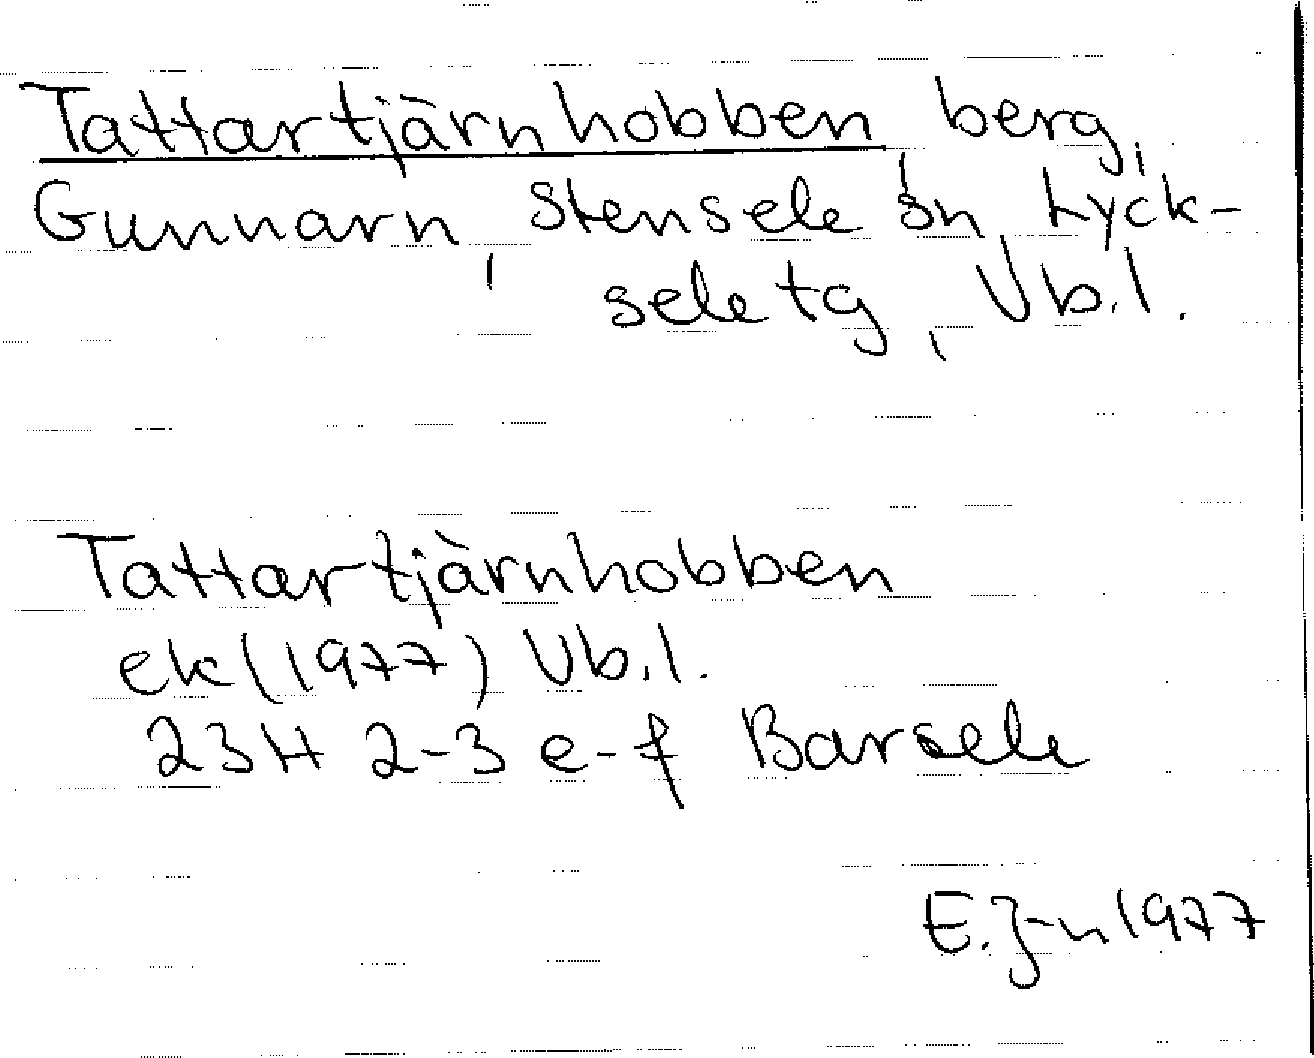 Tattartjärnhobben berg,
Gunnarn, Stensele sn, Lyck-
sele tg, Vb.l.
Tattartjärnhobben
ek (1977) Vb.l.
23H 2-3 e-f Barsele
E.J-n 1977